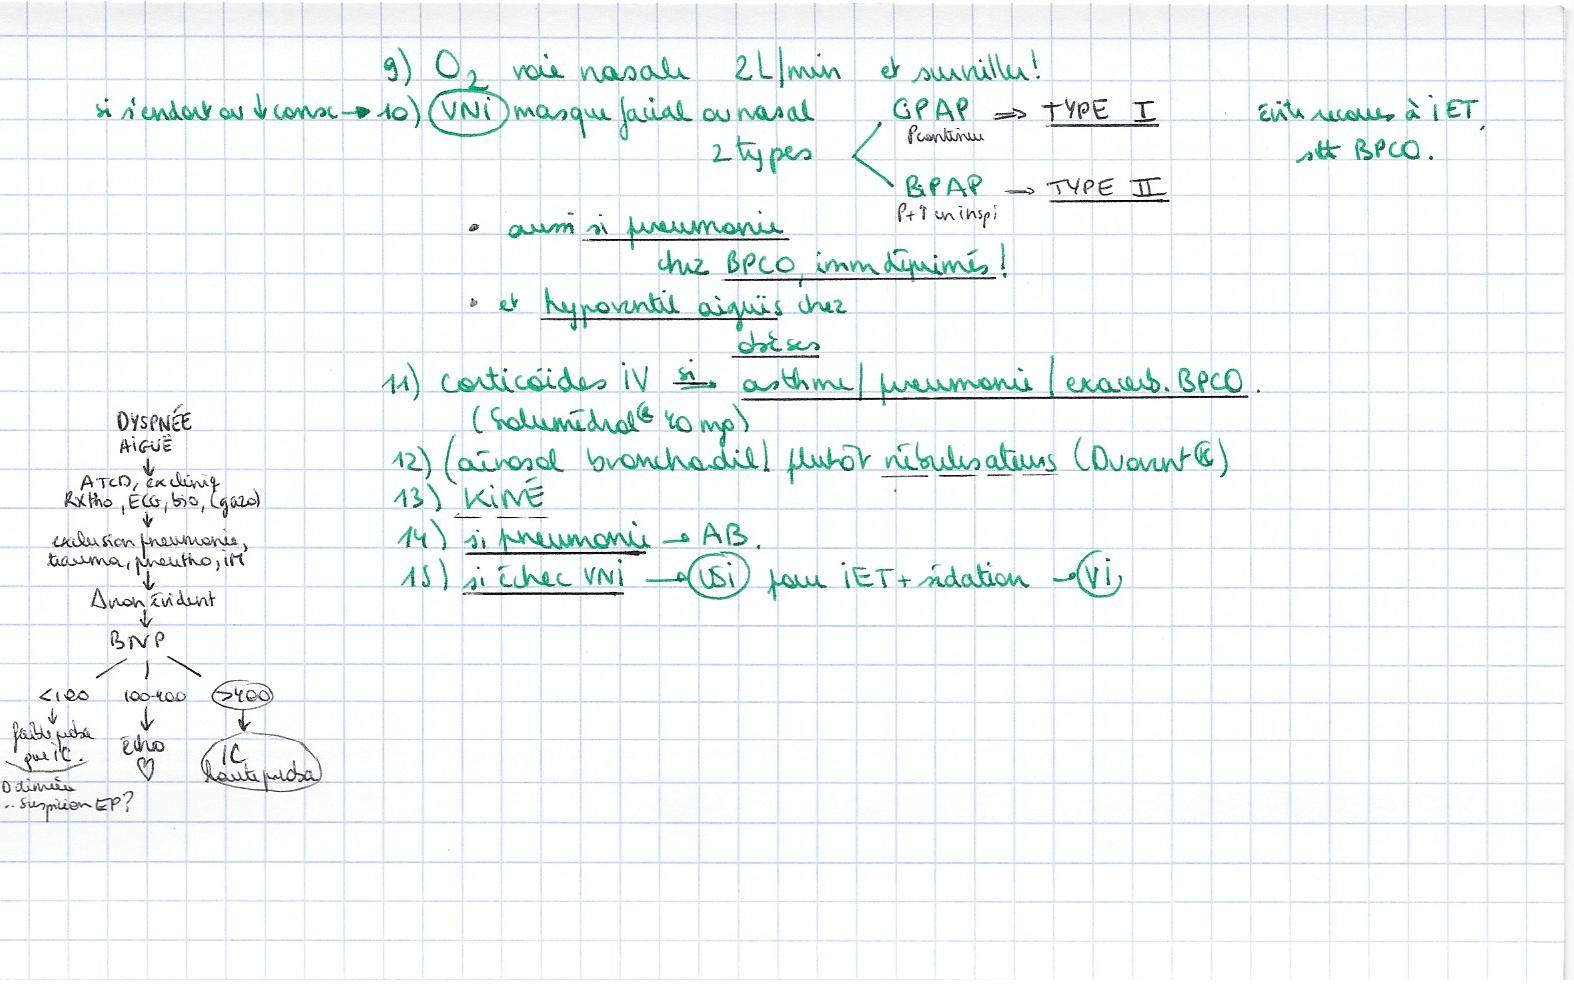 9) O2 voie nasale 2L/min et surveiller!
si s'endort ou ↓ consc → 10) VNi masque facial ou nasal
2 types
CPAP ⇒ TYPE I
Pcontinue
BiPAP → TYPE II
P+↑ en inspi
Évite recours à iET,
stt BPCO.
• aussi si pneumonie
chez BPCO, immdéprimés!
• et hypoventil aiguës chez
obèses
11) corticoïdes iV si → asthme / pneumonie / exacerb. BPCO.
(Solumédrol® 40 mg)
12) (aérosol bronchodil) plutôt nébulisateurs (Duovent®)
13) KiNÉ
14) si pneumonie → AB.
15) si échec VNi → USi pour iET + sédation → Vi,
DYSPNÉE
AiGUË
↓
ATCD, ex cliniq
RXtho, ECG, bio, (gazo)
↓
exclusion pneumonie,
trauma, pneutho, iM
↓
Δ non évident
↓
BNP
<100 100-400 >400
↓ ↓ ↓
faible proba
que iC.
écho
♡
iC
haute proba
D dimères
.. suspicion EP?